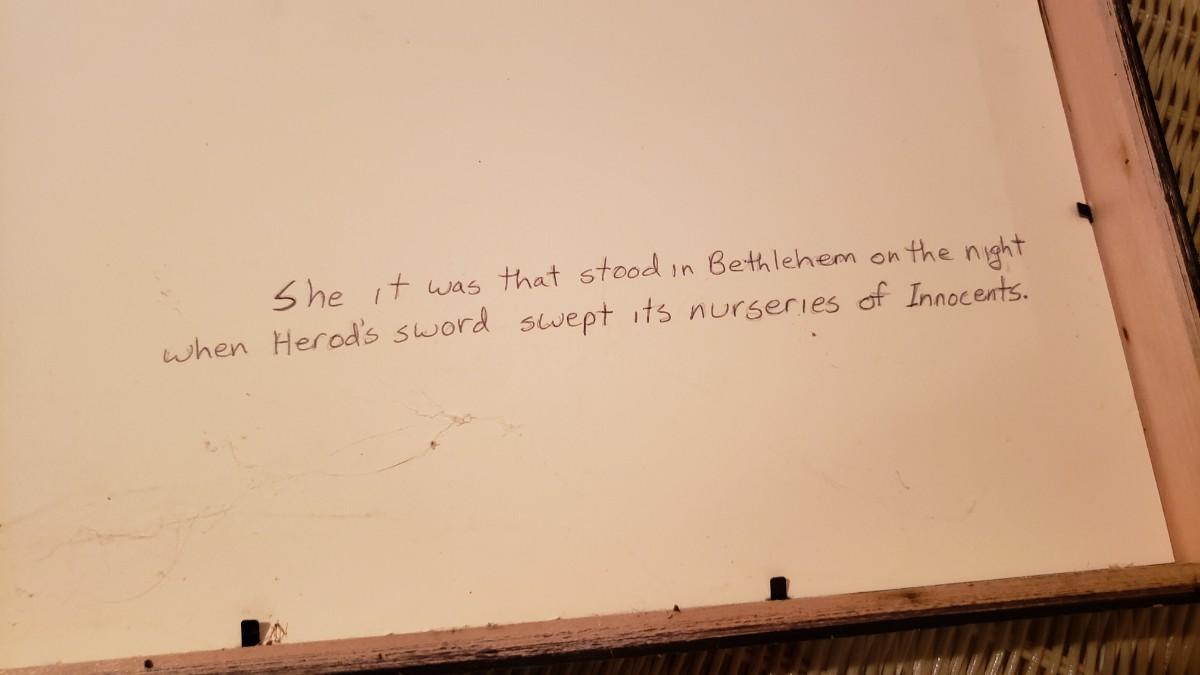 She it was that stood in Bethlehem on the night
when Herod's sword swept its nurseries of Innocents.